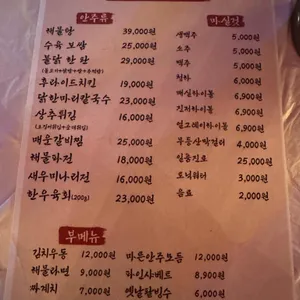 안주류
해물탕 39,000원
수육 보쌈 25,000원
불닭 한 판 29,000원
후라이드치킨 19,000원
닭한마리칼국수 23,000원
상추튀김 16,000원
(오징어튀김+순대튀김)
매운갈비찜 25,000원
해물파전 18,000원
새우미나리전 16,000원
한우육회(200g) 23,000원
마실것
생맥주 5,000원
소주 5,000원
맥주 5,000원
청하 6,000원
매실하이볼 7,000원
진저하이볼 7,000원
얼그레이하이볼 7,000원
무등산막걸리 4,000원
일품진로 25,000원
토닉워터 3,000원
음료 2,000원
부메뉴
김치우동 12,000원
해물라면 9,000원
짜계치 7,000원
마른안주모듬 12,000원
라인샤베트 8,900원
옛날팥빙수 6,000원